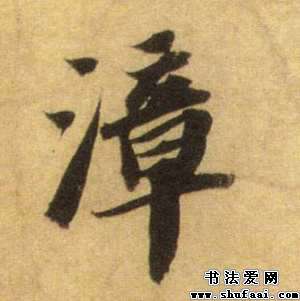 漳
书法爱网
www.shufaai.com